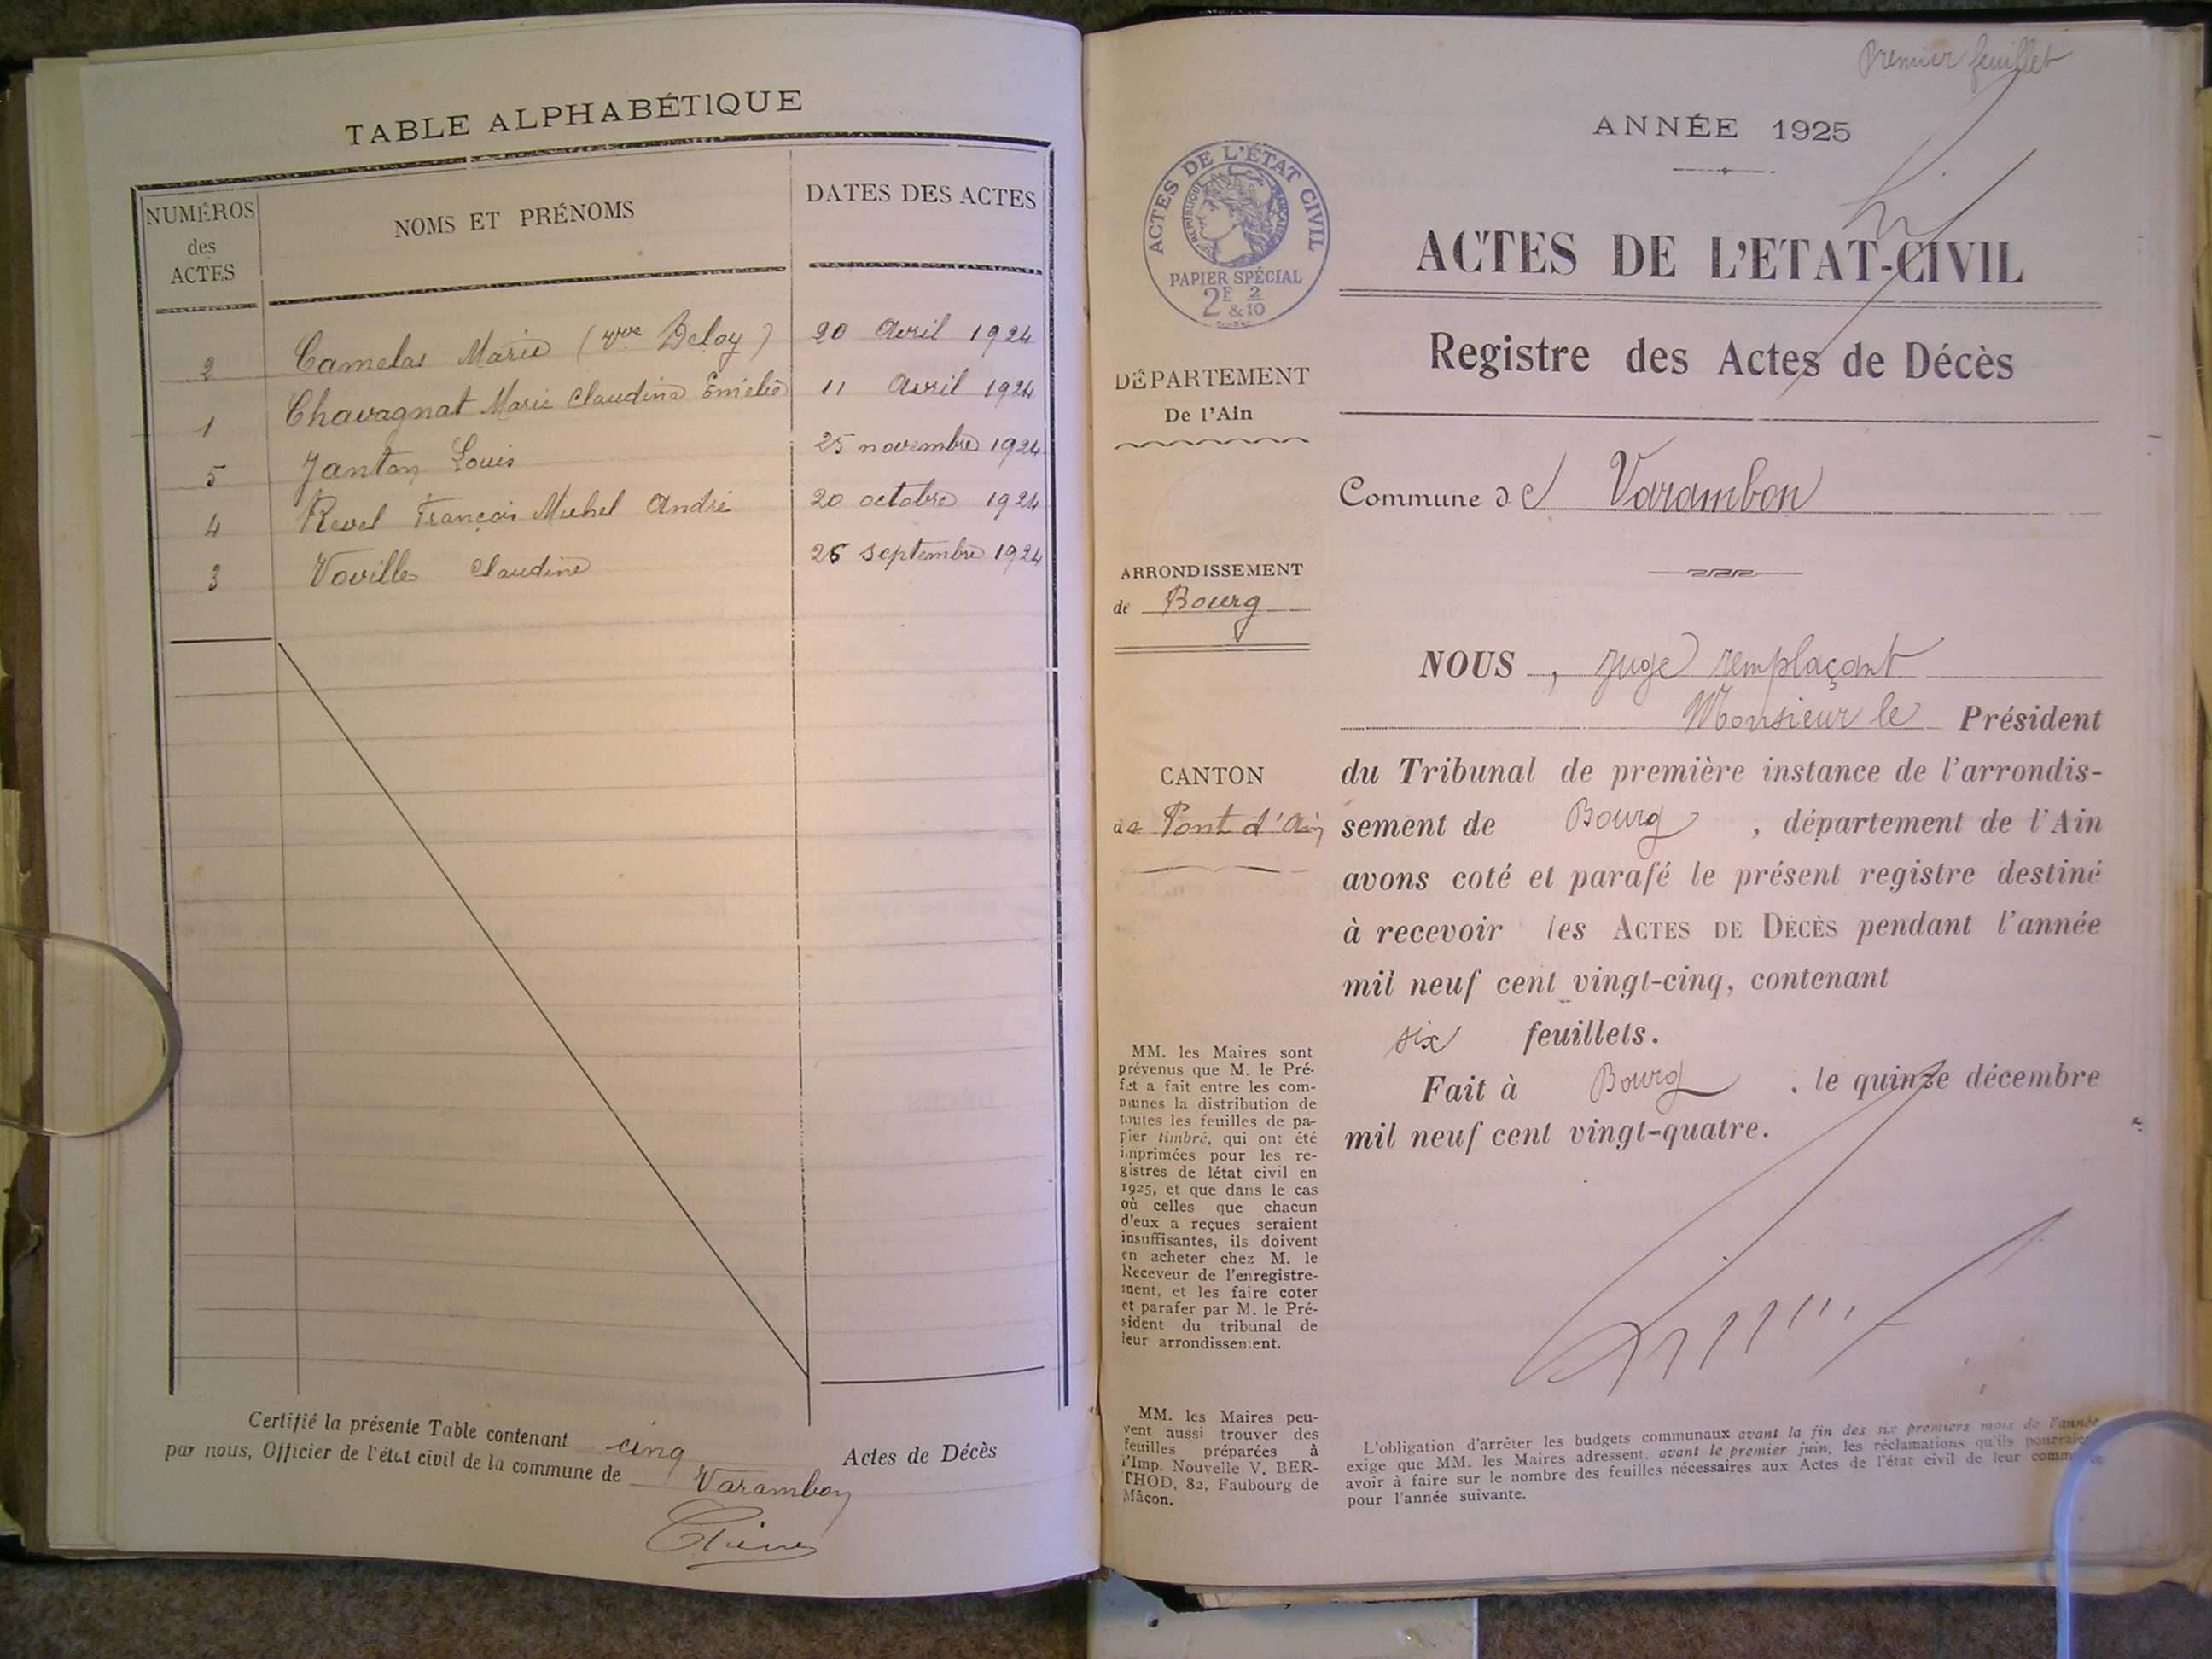 TABLE ALPHABÉTIQUE
NUMÉROS des ACTES
NOMS ET PRÉNOMS
DATES DES ACTES
2 Camelas Marie (Vve Deloy) 20 Avril 1924
1 Chavagnat Marie Claudine Emélie 11 Avril 1924
5 Janton Louis 25 novembre 1924
4 Revel François Michel André 20 octobre 1924
3 Voville Claudine 26 septembre 1924
Certifié la présente Table contenant cinq Actes de Décès
par nous, Officier de l'état civil de la commune de Varambon
Premier feuillet
ANNÉE 1925
ACTES DE L'ÉTAT CIVIL
RÉPUBLIQUE FRANÇAISE
PAPIER SPÉCIAL
2F 2
& 10
ACTES DE L'ETAT-CIVIL
Registre des Actes de Décès
DÉPARTEMENT
De l'Ain
Commune de Varambon
ARRONDISSEMENT
de Bourg
CANTON
de Pont d'Ain
NOUS, Juge remplaçant
Monsieur le Président
du Tribunal de première instance de l'arrondis-
sement de Bourg, département de l'Ain
avons coté et parafé le présent registre destiné
à recevoir les ACTES DE DÉCÈS pendant l'année
mil neuf cent vingt-cinq, contenant
six feuillets.
Fait à Bourg, le quinze décembre
mil neuf cent vingt-quatre.
MM. les Maires sont
prévenus que M. le Pré-
fet a fait entre les com-
munes la distribution de
toutes les feuilles de pa-
pier timbré, qui ont été
imprimées pour les re-
gistres de létat civil en
1925, et que dans le cas
où celles que chacun
d'eux a reçues seraient
insuffisantes, ils doivent
en acheter chez M. le
Receveur de l'enregistre-
ment, et les faire coter
et parafer par M. le Pré-
sident du tribunal de
leur arrondissement.
MM. les Maires peu-
vent aussi trouver des
feuilles préparées à
l'Imp. Nouvelle V. BER-
THOD, 82, Faubourg de
Mâcon.
L'obligation d'arrêter les budgets communaux avant la fin des six premiers mois de l'année
exige que MM. les Maires adressent, avant le premier juin, les réclamations qu'ils pourraient
avoir à faire sur le nombre des feuilles nécessaires aux Actes de l'état civil de leur commune
pour l'année suivante.